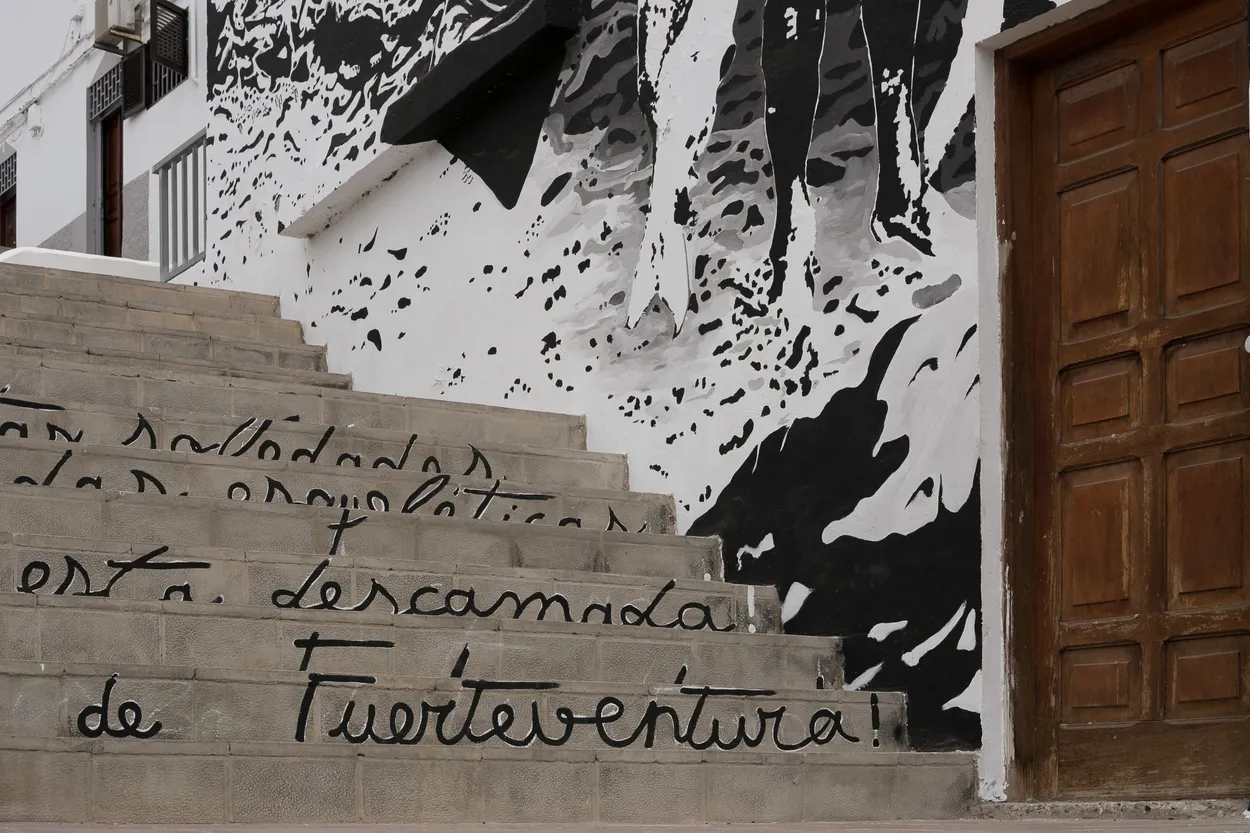 soledades
esqueléticas
esta descarnada
de Fuerteventura!